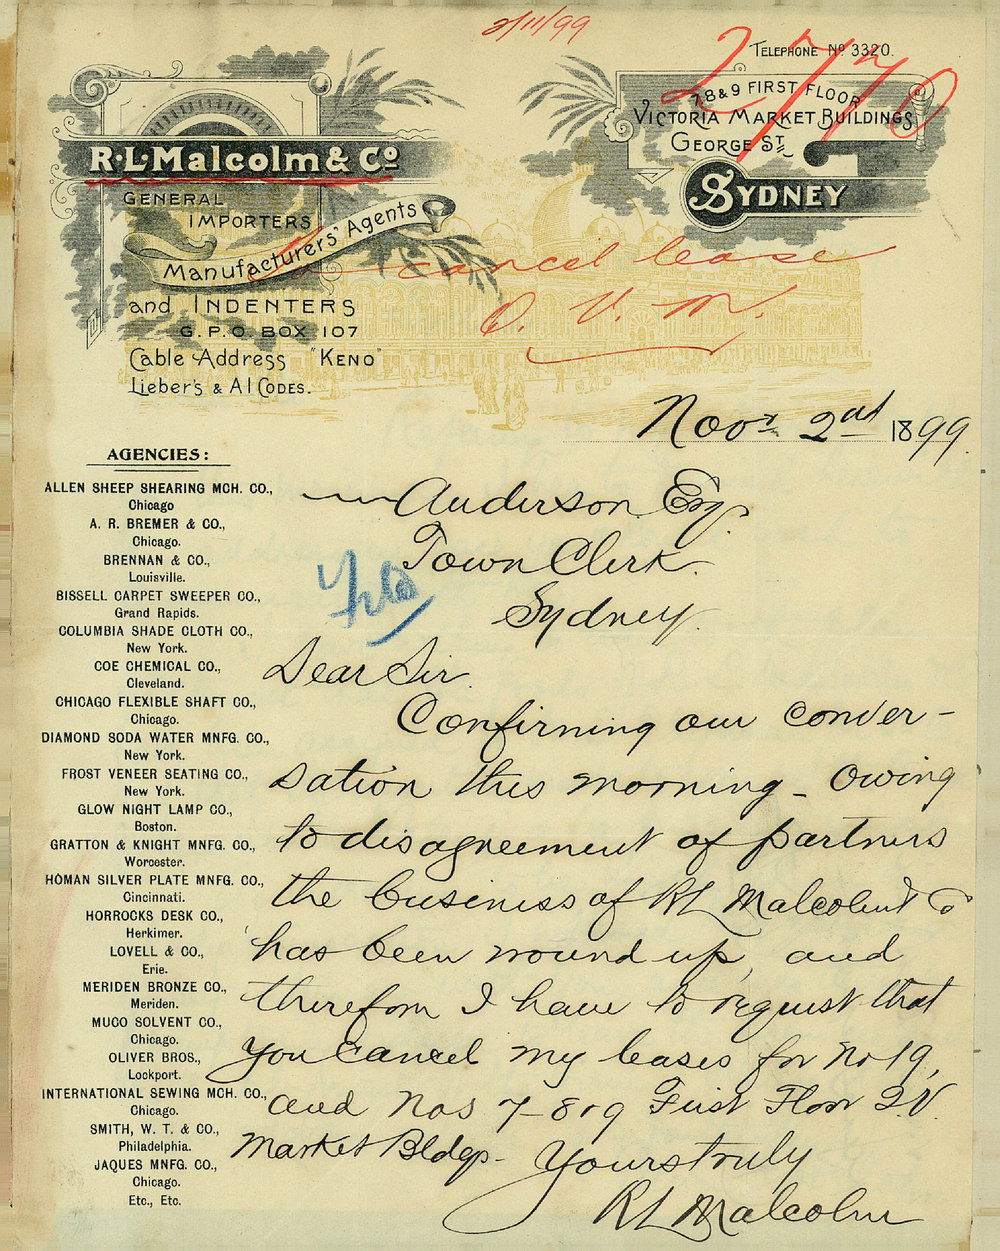 2/11/99
2770
TELEPHONE Nº 3320.
R·L·Malcolm & Cº
GENERAL
IMPORTERS
Manufacturers' Agents
and INDENTERS
G.P.O. BOX 107
Cable Address "KENO"
Lieber's & A1 CODES.
7,8 & 9 FIRST FLOOR
VICTORIA MARKET BUILDINGS
GEORGE ST
SYDNEY
cancel lease
Q. V. M.
Novr 2nd 1899.
AGENCIES:
ALLEN SHEEP SHEARING MCH. CO.,
Chicago
A. R. BREMER & CO.,
Chicago.
BRENNAN & CO.,
Louisville.
BISSELL CARPET SWEEPER CO.,
Grand Rapids.
COLUMBIA SHADE CLOTH CO.,
New York.
COE CHEMICAL CO.,
Cleveland.
CHICAGO FLEXIBLE SHAFT CO.,
Chicago.
DIAMOND SODA WATER MNFG. CO.,
New York.
FROST VENEER SEATING CO.,
New York.
GLOW NIGHT LAMP CO.,
Boston.
GRATTON & KNIGHT MNFG. CO.,
Worcester.
HOMAN SILVER PLATE MNFG. CO.,
Cincinnati.
HORROCKS DESK CO.,
Herkimer.
LOVELL & CO.,
Erie.
MERIDEN BRONZE CO.,
Meriden.
MUCO SOLVENT CO.,
Chicago.
OLIVER BROS.,
Lockport.
INTERNATIONAL SEWING MCH. CO.,
Chicago.
SMITH, W. T. & CO.,
Philadelphia.
JAQUES MNFG. CO.,
Chicago.
Etc., Etc.
Anderson Esq.
Town Clerk.
Sydney.
Dear Sir.
Confirming our conver-
sation this morning - Owing
to disagreement of partners
the business of RL Malcolm & Co
has been wound up, and
therefore I have to request that
you cancel my leases for No 19,
and Nos 7-8 & 9 First Floor Q.V.
Market Bldgs - Yours truly
RL Malcolm